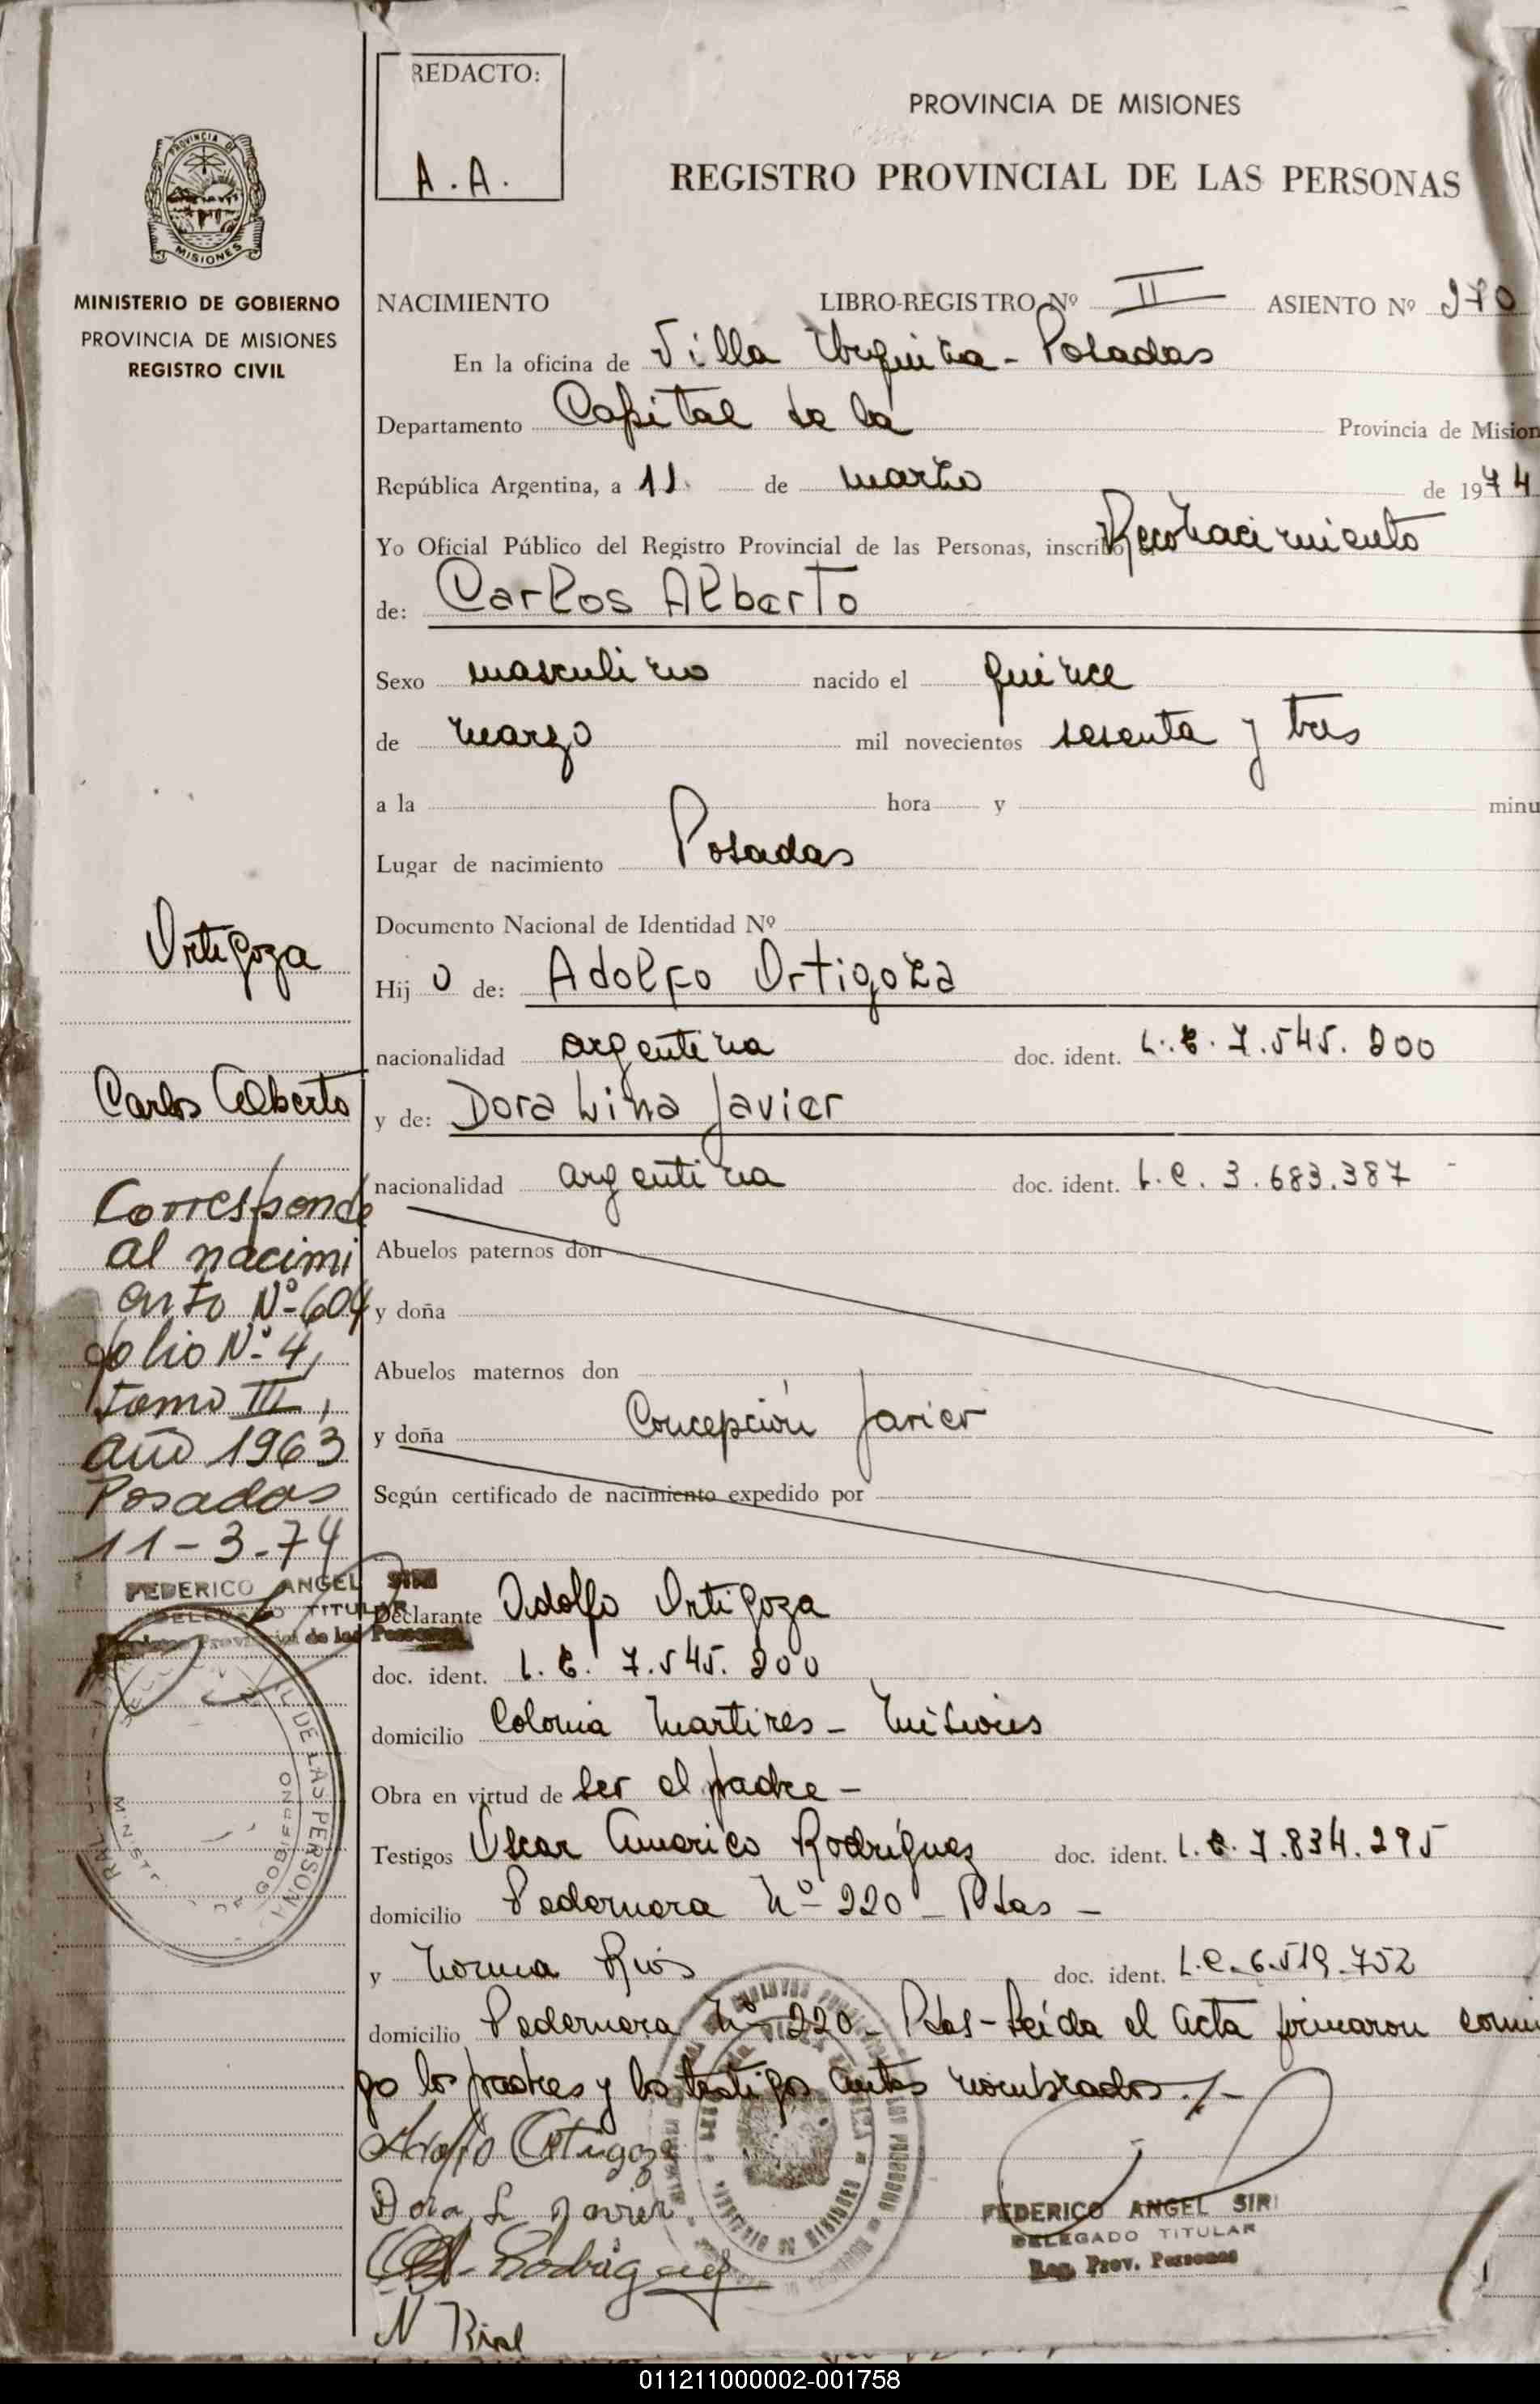 REDACTO:
A.A.
PROVINCIA DE MISIONES
REGISTRO PROVINCIAL DE LAS PERSONAS
PROVINCIA DE
MISIONES
MINISTERIO DE GOBIERNO
PROVINCIA DE MISIONES
REGISTRO CIVIL
NACIMIENTO LIBRO-REGISTRO Nº II ASIENTO Nº 970
En la oficina de Villa Urquiza - Posadas
Departamento Capital de la Provincia de Mision
República Argentina, a 11 de marzo de 1974
Yo Oficial Público del Registro Provincial de las Personas, inscribo Reconocimiento
de: Carlos Alberto
Sexo masculino nacido el quince
de marzo mil novecientos sesenta y tres
a la hora y minu
Lugar de nacimiento Posadas
Documento Nacional de Identidad Nº
Hijo de: Adolfo Ortigoza
nacionalidad argentina doc. ident. L.E. 7.545.200
y de: Dora Lina Javier
nacionalidad argentina doc. ident. L.C. 3.683.387
Abuelos paternos don
y doña
Abuelos maternos don
y doña Concepción Javier
Según certificado de nacimiento expedido por
Declarante Adolfo Ortigoza
doc. ident. L.E. 7.545.200
domicilio Colonia Martires - Misiones
Obra en virtud de ser el padre -
Testigos Oscar Americo Rodríguez doc. ident. L.E. 7.834.295
domicilio Pedernera Nº 220 - Pdas -
y Norma Ríos doc. ident. L.C. 6.519.752
domicilio Pedernera Nº 220 - Pdas - Leída el acta firmaron conmi
go los padres y los testigos antes nombrados./-
Adolfo Ortigoza
Dora L Javier
Rodríguez
FEDERICO ANGEL SIRI
DELEGADO TITULAR
Reg. Prov. Personas
Ortigoza
Carlos Alberto
Corresponde
al nacimi
ento Nº 604
folio Nº 4,
tomo III,
año 1963
Posadas
11-3-74
FEDERICO ANGEL SIRI
DELEGADO TITULAR
Registro Provincial de las Personas
DE LAS PERSONA
DE GOBIERNO
011211000002-001758